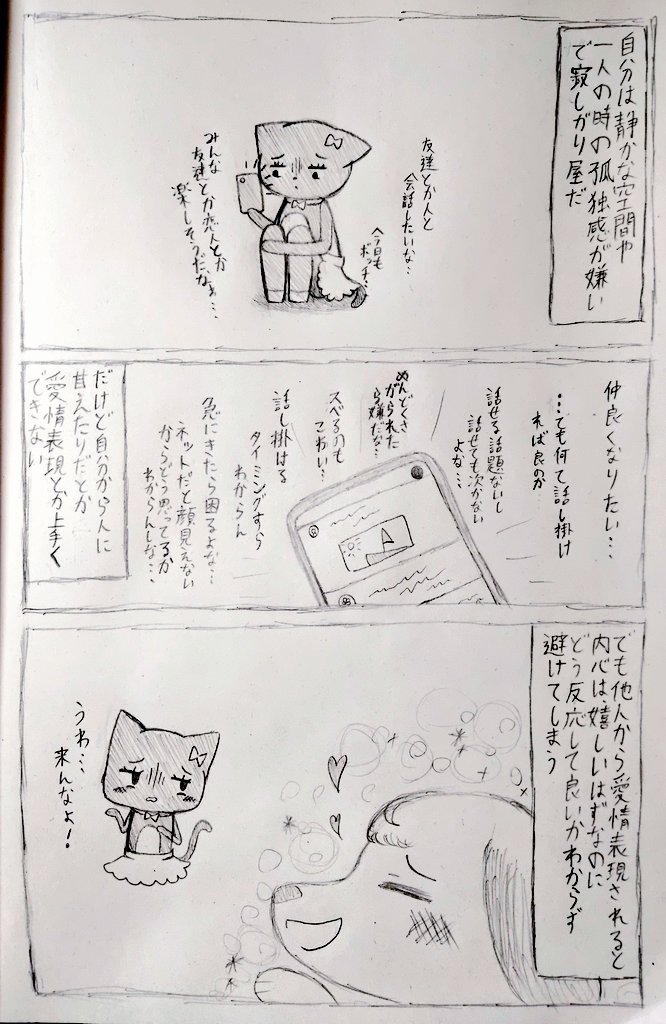 自分は静かな空間や
一人の時の孤独感が嫌い
で寂しがり屋だ
友達とか人と
会話したいな…
今日も
ボッチ…
みんな
友達とか恋人とか
楽しそうだなぁ…
仲良くなりたい…
…でも何て話し掛け
れば良のか
話せる話題ないし
話せても次がない
よな…
めんどくさ
がられた
ら嫌だな…
スベるのも
こわい…
話し掛ける
タイミングすら
わからん
急にきたら困るよな…
ネットだと顔見えない
からどう思ってるか
わからんしな…
だけど自分から人に
甘えたりだとか
愛情表現とか上手く
できない
でも他人から愛情表現されると
内心は嬉しいはずなのに
どう反応して良いかわからず
避けてしまう
うわ…
来んなよ!